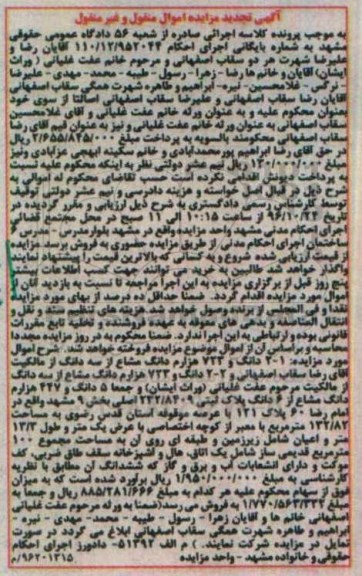 آگهی تجدید مزایده اموال منقول و غیر منقول
به موجب پرونده کلاسه اجرائی صادره از شعبه ۵۶ دادگاه عمومی حقوقی
مشهد به شماره بایگانی اجرای احکام ۱۱۰/۱۲/۹۵۲۰۴۴ آقایان رضا و
علیرضا شهرت هر دو سقاب اصفهانی و مرحوم خانم عفت غلیانی ( وراث
ایشان) آقایان و خانم ها رضا - زهرا - رسول - طیبه - محمد - مهدی - علیرضا
- نرگس - غلامحسین - نیره - ابراهیم و طاهره شهرت همگی سقاب اصفهانی
آقایان رضا سقاب اصفهانی و علیرضا سقاب اصفهانی اصالتا از سوی خود
بعنوان محکوم علیه و به عنوان ورثه خانم عفت غلیانی و آقای غلامحسین
سقاب اصفهانی به عنوان ورثه خانم عفت غلیانی و نیز به عنوان قیم آقای رضا
سقاب اصفهانی محکومند بالسویه به پرداخت مبلغ ۲/۶۵۵/۸۴۵/۰۰۰ ریال
در حق آقای رضا ابراهیم پورمحمدآبادی و خانم سکینه لیهچی مزابادی ونیز
مبلغ ۱۳۰/۰۰۰/۰۰۰ ریال نیم عشر دولتی نظر به اینکه محکوم علیه نسبت
به پرداخت دیونش اقدامی نکرده است حسب تقاضای محکوم له اموالی به
شرح ذیل در قبال اصل خواسته و هزینه دادرسی و نیم عشر دولتی توقیف و
توسط کارشناس رسمی دادگستری به شرح ذیل ارزیابی و مقرر گردیده در
تاریخ ۹۶/۱۰/۲۴ از ساعت ۱۰:۱۵ الی ۱۱ صبح در محل مجتمع قضائی
اجرای احکام مدنی مشهد واحد مزایده واقع در مشهد بلوار مدرس - مدرس ۶
ساختمان اجرای احکام مدنی از طریق مزایده حضوری به فروش برسد. مزایده
از قیمت ارزیابی شده شروع و به کسانی که بالاترین قیمت را پیشنهاد نمایند
واگذار خواهد شد طالبین به خرید می توانند جهت کسب اطلاعات بیشتر
پنج روز قبل از برگزاری مزایده به این اجرا مراجعه تا نسبت به بازدید آنان از
اموال مورد مزایده اقدام گردد. ضمنا حداقل ده درصد از بهای مورد مزایده
نقدا و فی المجلس از برنده وصول خواهد شد. هزینه های تنظیم سند و نقل و
انتقال المناصفه و بدهی های معوقه به عهده فروشنده و تخلیه تابع مقررات
قانونی بوده و ارتباطی به این اجرا ندارد. ضمنا محکوم به در روز مزایده مجددا
محاسبه و براساس آن از اموال موضوع مزایده فروخته خواهد شد. شرح اموال
مورد مزایده: ۱-۲ دانگ و ۷۳۳ هزارم دانگ مشاع از سه دانگ از مالکیت
آقای رضا سقاب اصفهانی و ۲-۲ دانگ و ۷۳۳ هزارم دانگ مشاع از سه دانگ
از مالکیت مرحوم عفت غلیانی (وراث ایشان) و جمعا ۵ دانگ و ۴۴۷ هزارم
دانگ مشاع از ۶ دانگ پلاک ثبتی ۲۴۲/۸۴۰۹ اصلی بخش ۹ مشهد واقع در
امام رضا ۶۰ پلاک ۱۲۱ با عرصه موقوفه آستان قدس رضوی به مساحت
۱۳۲/۸۲ مترمربع با معبر از کوچه اختصاصی با عرض یک متر و طول ۱۳/۳
متر و اعیان شامل زیرزمین و طبقه ای روی آن به مساحت مجموع ۱۰۰
مترمربع قدیمی ساز شامل یک اتاق، هال و آشپزخانه سقف طاق ضربی، کف
موکت و دارای انشعابات آب و برق و گاز که ششدانگ آن مطابق با نظریه
کارشناسی به مبلغ ۱/۹۵۰/۰۰۰/۰۰۰ ریال برآورد شده است که به میزان
فوق از سهام محکوم علیه هر کدام به مبلغ ۸۸۵/۲۸۱/۶۶۶ ریال و جمعا به
مبلغ ۱/۷۷۰/۵۶۳/۳۳۲ به فروش می رسد (ضمنا به ورثه مرحوم عفت غلیانی
اصفهانی خانم ها و آقایان زهرا - رسول - طیبه - محمد - مهدی - نیره -
ابراهیم و طاهره شهرت همگی سقاب اصفهانی ابلاغ می گردد در صورت
تمایل در مزایده شرکت نمایند. ) م الف ۵۱۳۹۲- دادورز اجرای احکام
حقوقی و خانواده مشهد - واحد مزایده
۹۶۲۰۱۳۱۵/م